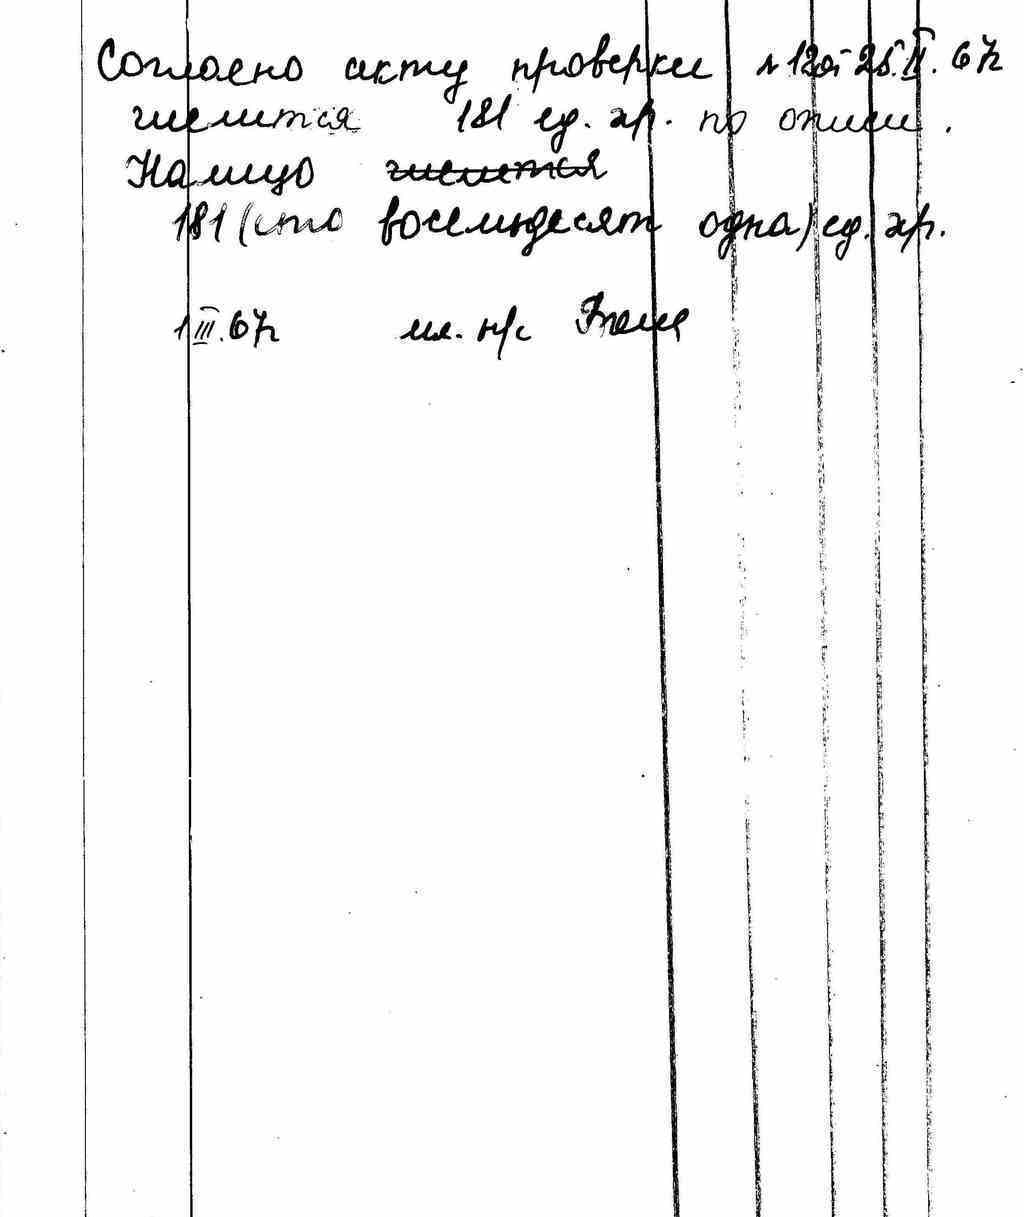 Согласно акту проверки № 12 от 25.II.67г
числится 181 ед. хр. по описи.
Налицо числится
181 (сто восемьдесят одна) ед. хр.
1 III.67г мл. н/с